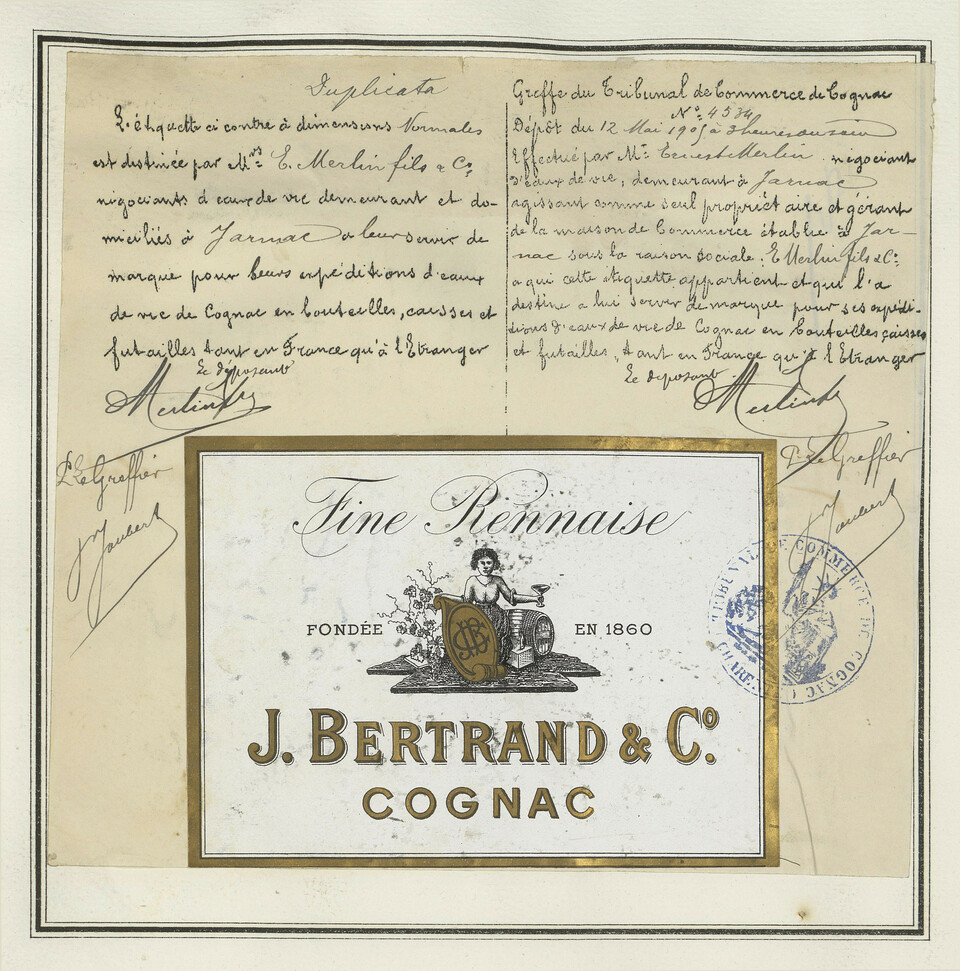 Duplicata
L'étiquette ci contre à dimensions Normales
est destinée par Mrs E. Merlin fils & Co.
négociants d'eaux de vie demeurant et do-
miciliés à Jarnac a leur servir de
marque pour leurs expéditions d'eaux
de vie de Cognac en bouteilles, caisses et
futailles tant en France qu'à l'Etranger
Le déposant
Merlin fils
Pr Le Greffier
Joubert
Greffe du Tribunal de Commerce de Cognac
No 4534
Dépôt du 12 Mai 1905 à 3 heures du soir
Effectué par Mr Ernest Merlin négociant
d'eaux de vie, demeurant à Jarnac
agissant comme seul propriétaire et gérant
de la maison de Commerce établie à Jar-
nac sous la raison sociale. E Merlin fils & Co.
a qui cette étiquette appartient et qui l'a
destine a lui servir de marque pour ses expédi-
tions d'eaux de vie de Cognac en bouteilles caisses
et futailles, tant en France qu'à l'Etranger
Le déposant.
Merlin fils
Pr Le Greffier
Joubert
Fine Rennaise
FONDÉE EN 1860
JB
J. BERTRAND & Co.
COGNAC
TRIBUNAL DE COMMERCE DE COGNAC (CHARENTE)